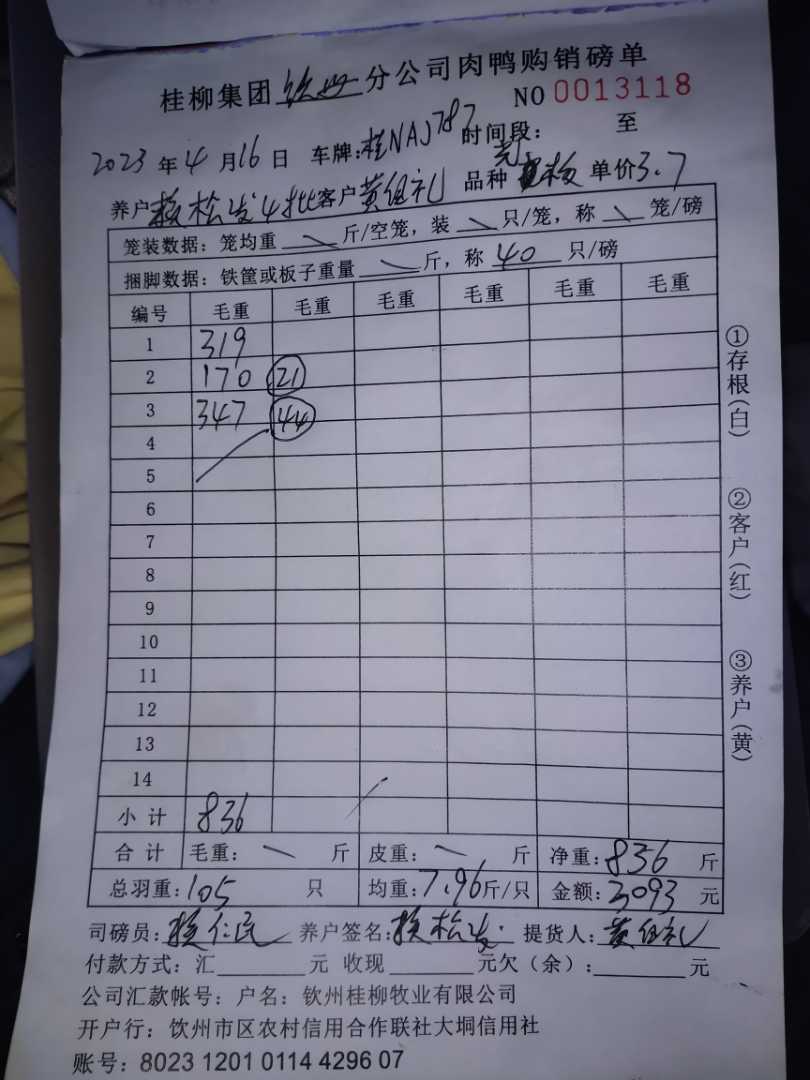 桂柳集团钦州分公司肉鸭购销磅单
NO 0013118
2023年4月16日 车牌:桂NAJ787 时间段: 至
养户 松发4批 客户黄组礼 品种 单价3.7
笼装数据:笼均重 \ 斤/空笼,装 \ 只/笼,称 \ 笼/磅
捆脚数据:铁筐或板子重量 \ 斤,称 40 只/磅
编号 毛重 毛重 毛重 毛重 毛重 毛重
1 319
2 170 21
3 347 44
4
5
6
7
8
9
10
11
12
13
14
小计 836
合计 毛重: \ 斤 皮重: \ 斤 净重:836 斤
总羽重:105 只 均重:7.96斤/只 金额:3093元
司磅员: 仁民 养户签名: 松发 提货人:黄组礼
付款方式:汇 元 收现 元欠(余): 元
公司汇款帐号:户名:钦州桂柳牧业有限公司
开户行:钦州市区农村信用合作联社大垌信用社
账号:8023 1201 0114 4296 07
①存根(白)
②客户(红)
③养户(黄)